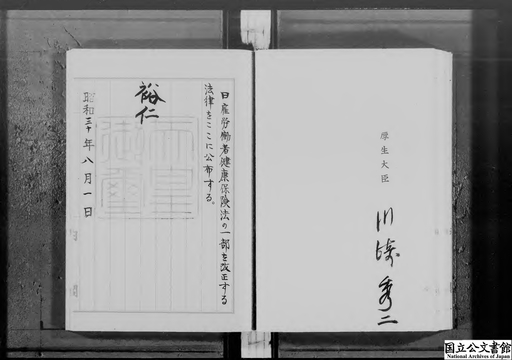 厚生大臣
川崎秀二
日雇労働者健康保険法の一部を改正する
法律をここに公布する。
裕仁
天皇
御璽
昭和三十年八月一日
国立公文書館
National Archives of Japan